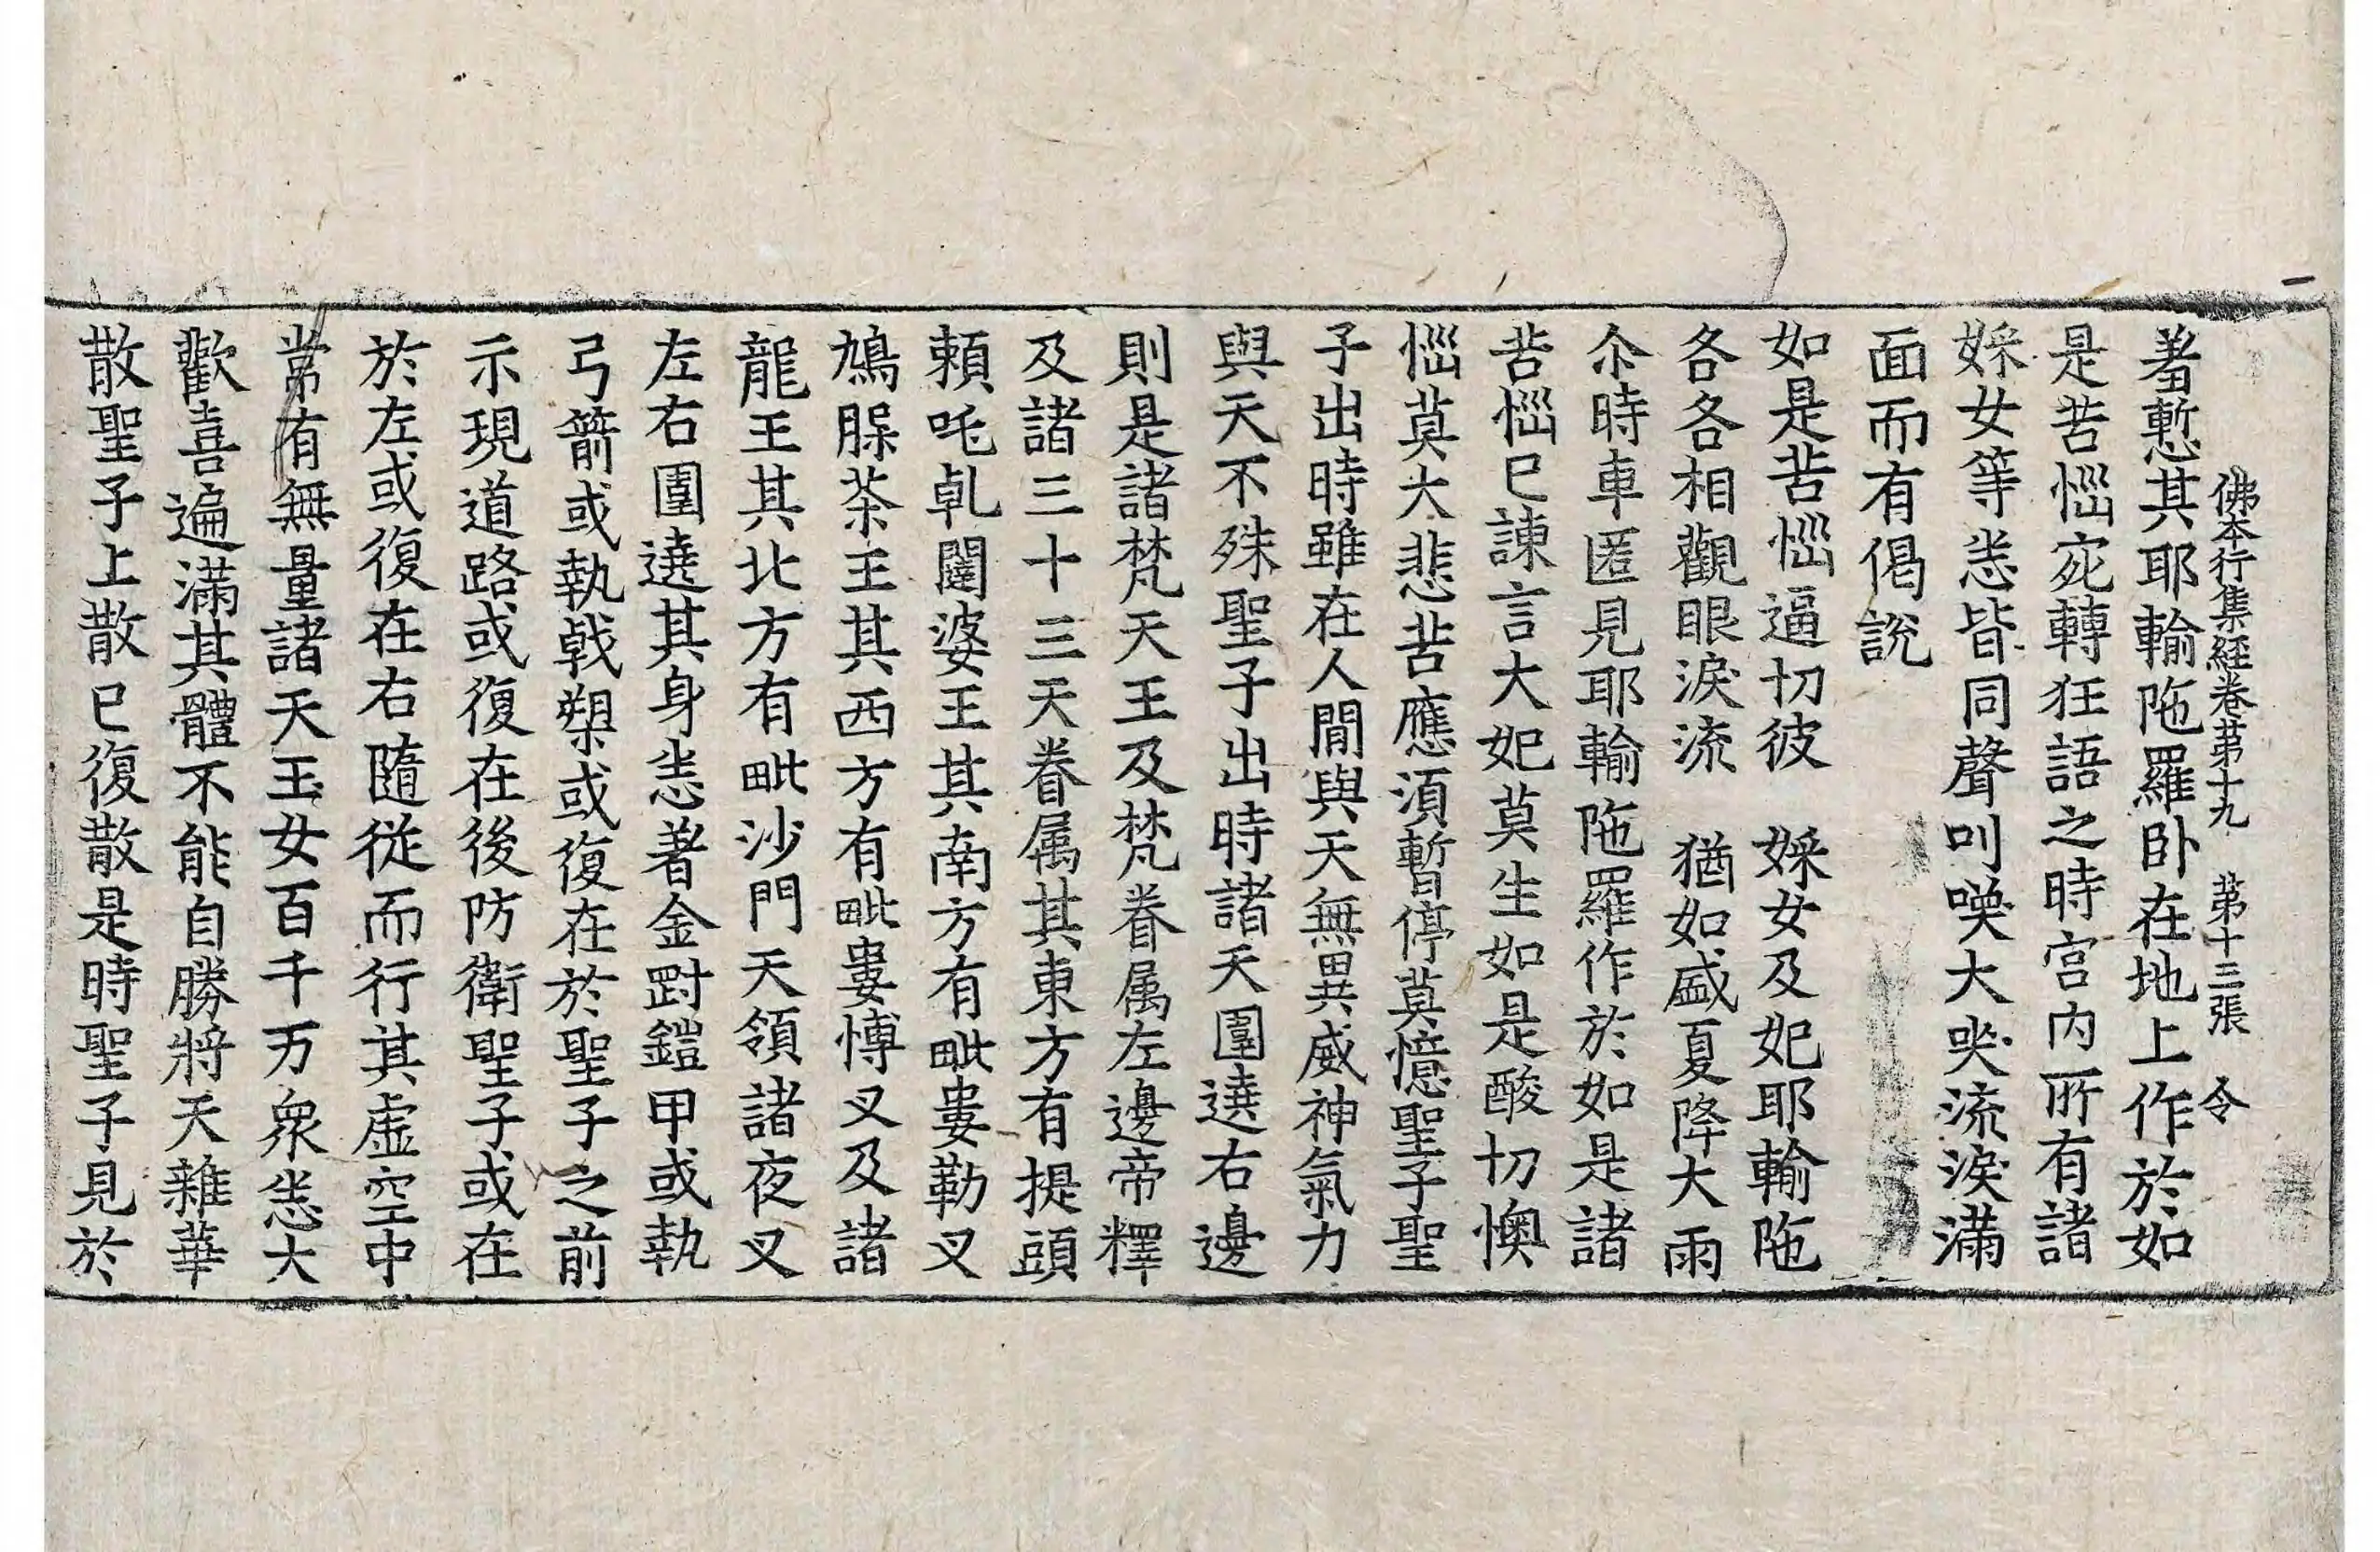 佛本行集経卷苐十九 苐十三張 令
羞慙其耶輸陁羅卧在地上作於如
是苦惱宛轉狂語之時宫内所有諸
婇女等悉皆同聲叫㗛大哭流淚滿
面而有偈說
如是苦惱逼切彼 婇女及妃耶輸陁
各各相觀眼淚流 猶如盛夏降大雨
尒時車匿見耶輸陁羅作於如是諸
苦惱已諫言大妃莫生如是酸切懊
惱莫大悲苦應湏暫停莫憶聖子聖
子出時雖在人間與天無異威神氣力
與天不殊聖子出時諸天圍遶右邊
則是諸梵天王及梵眷属左邊帝釋
及諸三十三天眷属其東方有提頭
頼吒乹闥婆王其南方有毗婁勒叉
鳩腺茶王其西方有毗婁愽叉及諸
龍王其北方有毗沙門天領諸夜叉
左右圍遶其身悉著金㓰鎧甲或執
弓箭或執戟槊或復在於聖子之前
示現道路或復在後防衛聖子或在
於左或復在右隨從而行其虛空中
常有無量諸天玉女百千万衆悉大
歡喜遍滿其體不能自勝將天雜華
散聖子上散已復散是時聖子見於